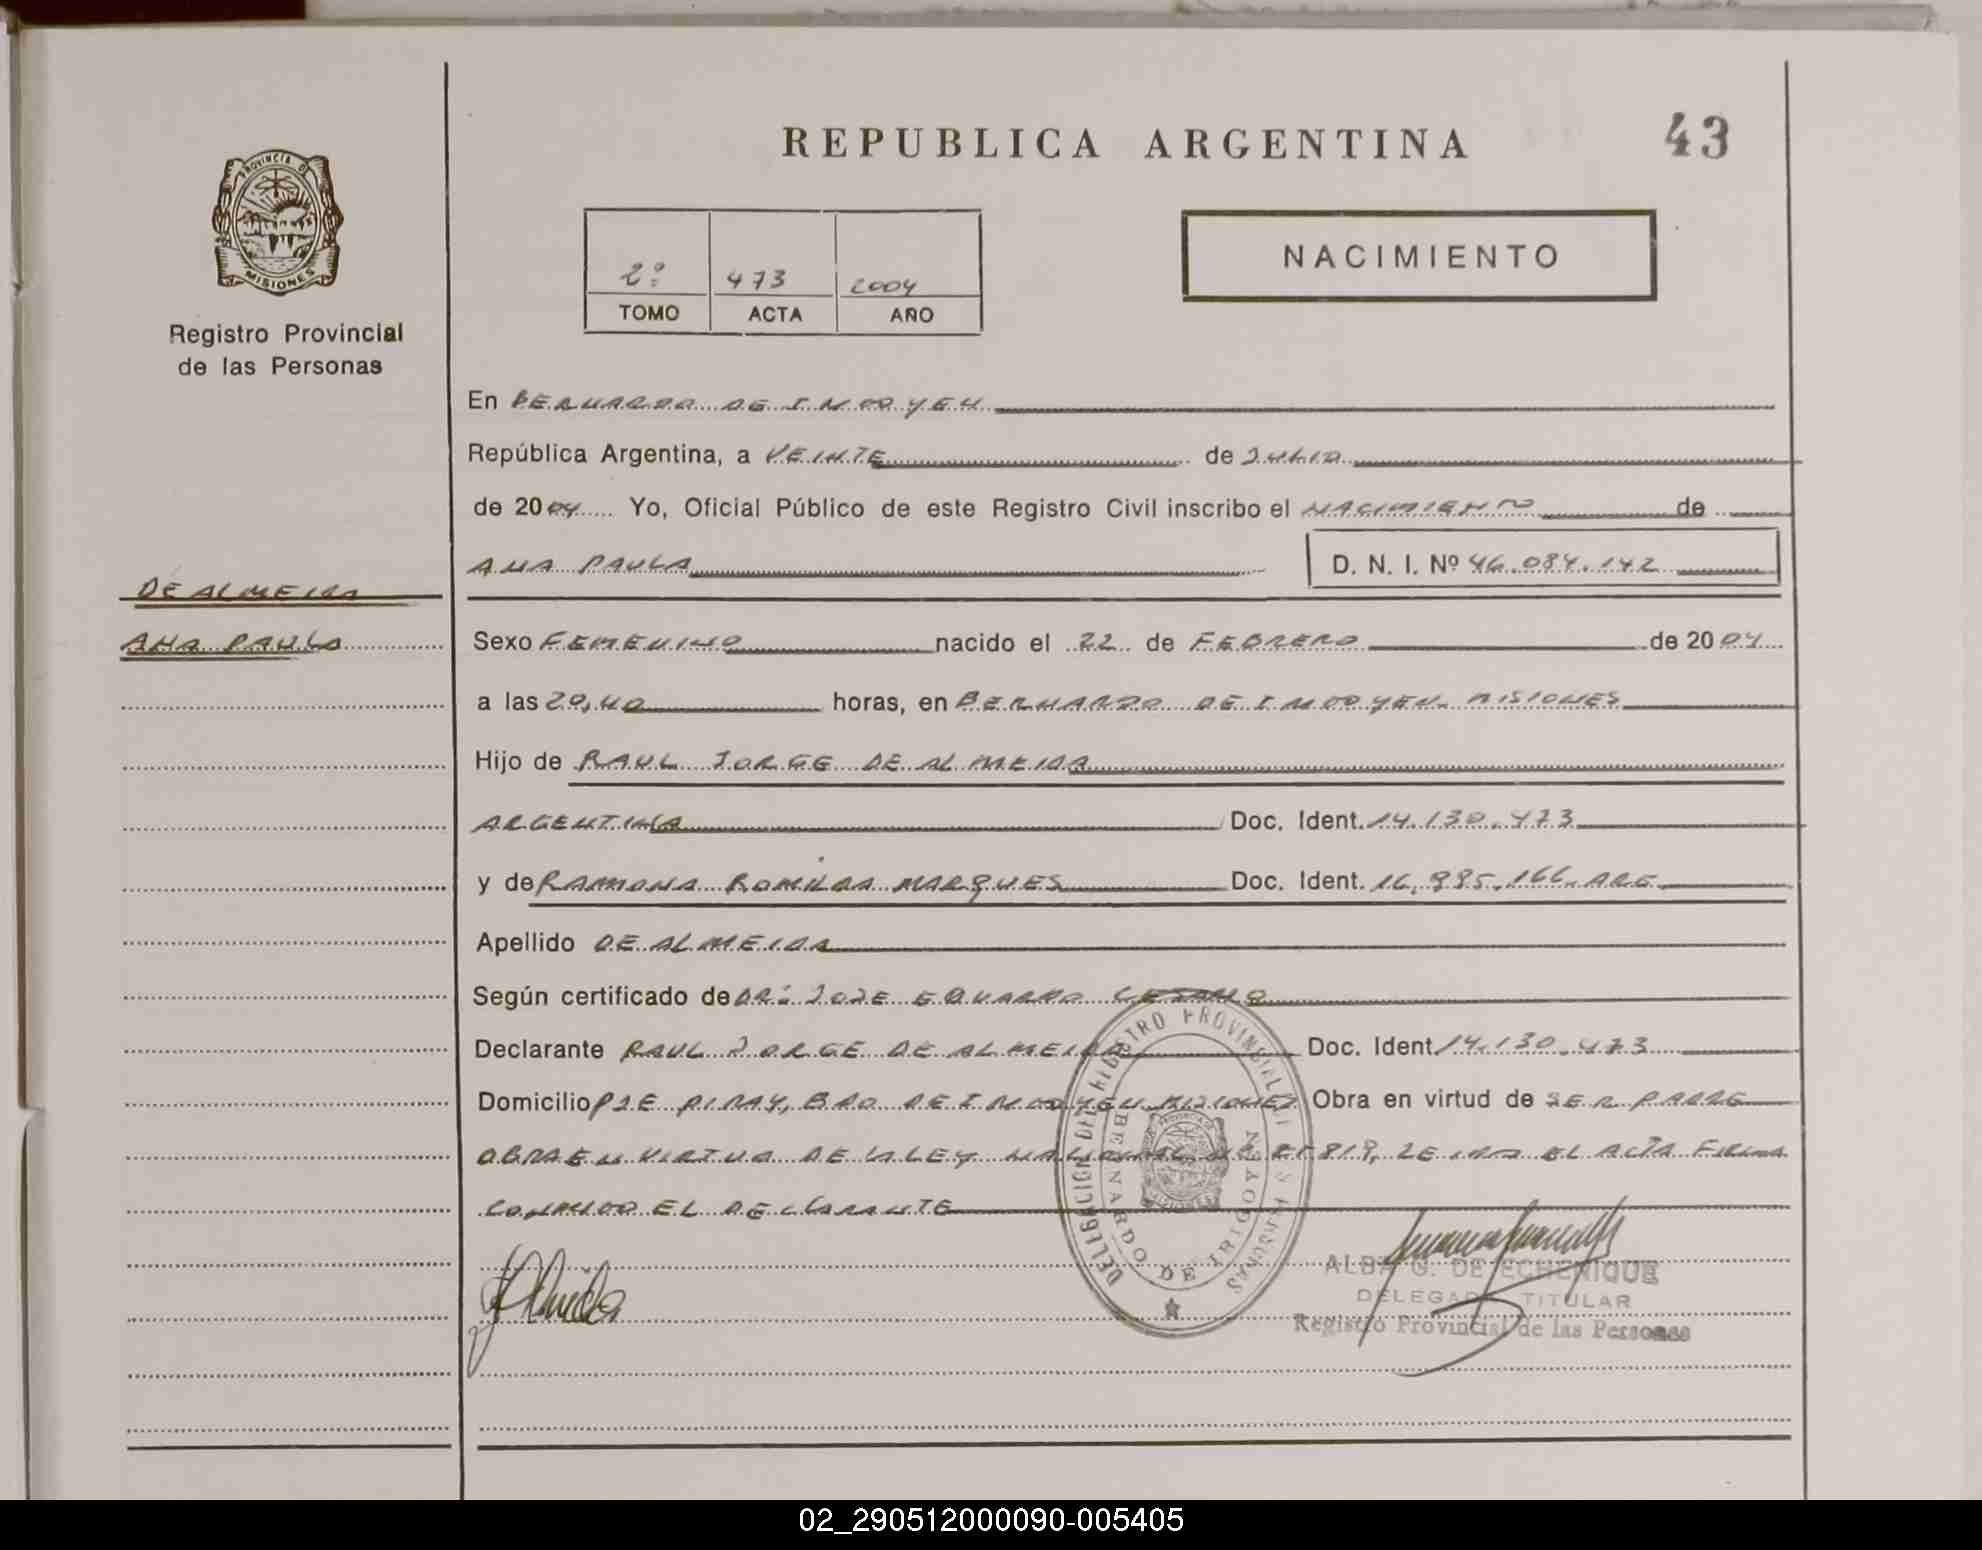 REPUBLICA ARGENTINA
43
PROVINCIA DE
MISIONES
Registro Provincial
de las Personas
2º 473 2004
TOMO ACTA AÑO
NACIMIENTO
En BERNARDO DE IRIGOYEN
República Argentina, a VEINTE de JULIO
de 2004 Yo, Oficial Público de este Registro Civil inscribo el NACIMIENTO de
ANA PAULA D. N. I. Nº 46.084.142
DE ALMEIDA
ANA PAULA
Sexo FEMENINO nacido el 22 de FEBRERO de 2004
a las 20,40 horas, en BERNARDO DE IRIGOYEN. MISIONES
Hijo de RAUL JORGE DE ALMEIDA
ARGENTINA Doc. Ident. 14.130.473
y de RAMONA ROMILDA MARQUES Doc. Ident. 16.995.166. ARG
Apellido DE ALMEIDA
Según certificado de DR. JOSE EDUARDO
Declarante RAUL JORGE DE ALMEIDA Doc. Ident 14.130.473
Domicilio PJE PIRAY, BDO DE IRIGOYEN MISIONES Obra en virtud de SER PADRE
OBRA EN VIRTUD DE LA LEY NACIONAL Nº 25819, LEIDA EL ACTA FIRMA
CONMIGO EL DECLARANTE
DELEGACION DEL REGISTRO PROVINCIAL DE LAS PERSONAS
BERNARDO DE IRIGOYEN
ALBA G. DE ECHENIQUE
DELEGADA TITULAR
Registro Provincial de las Personas
02_290512000090-005405